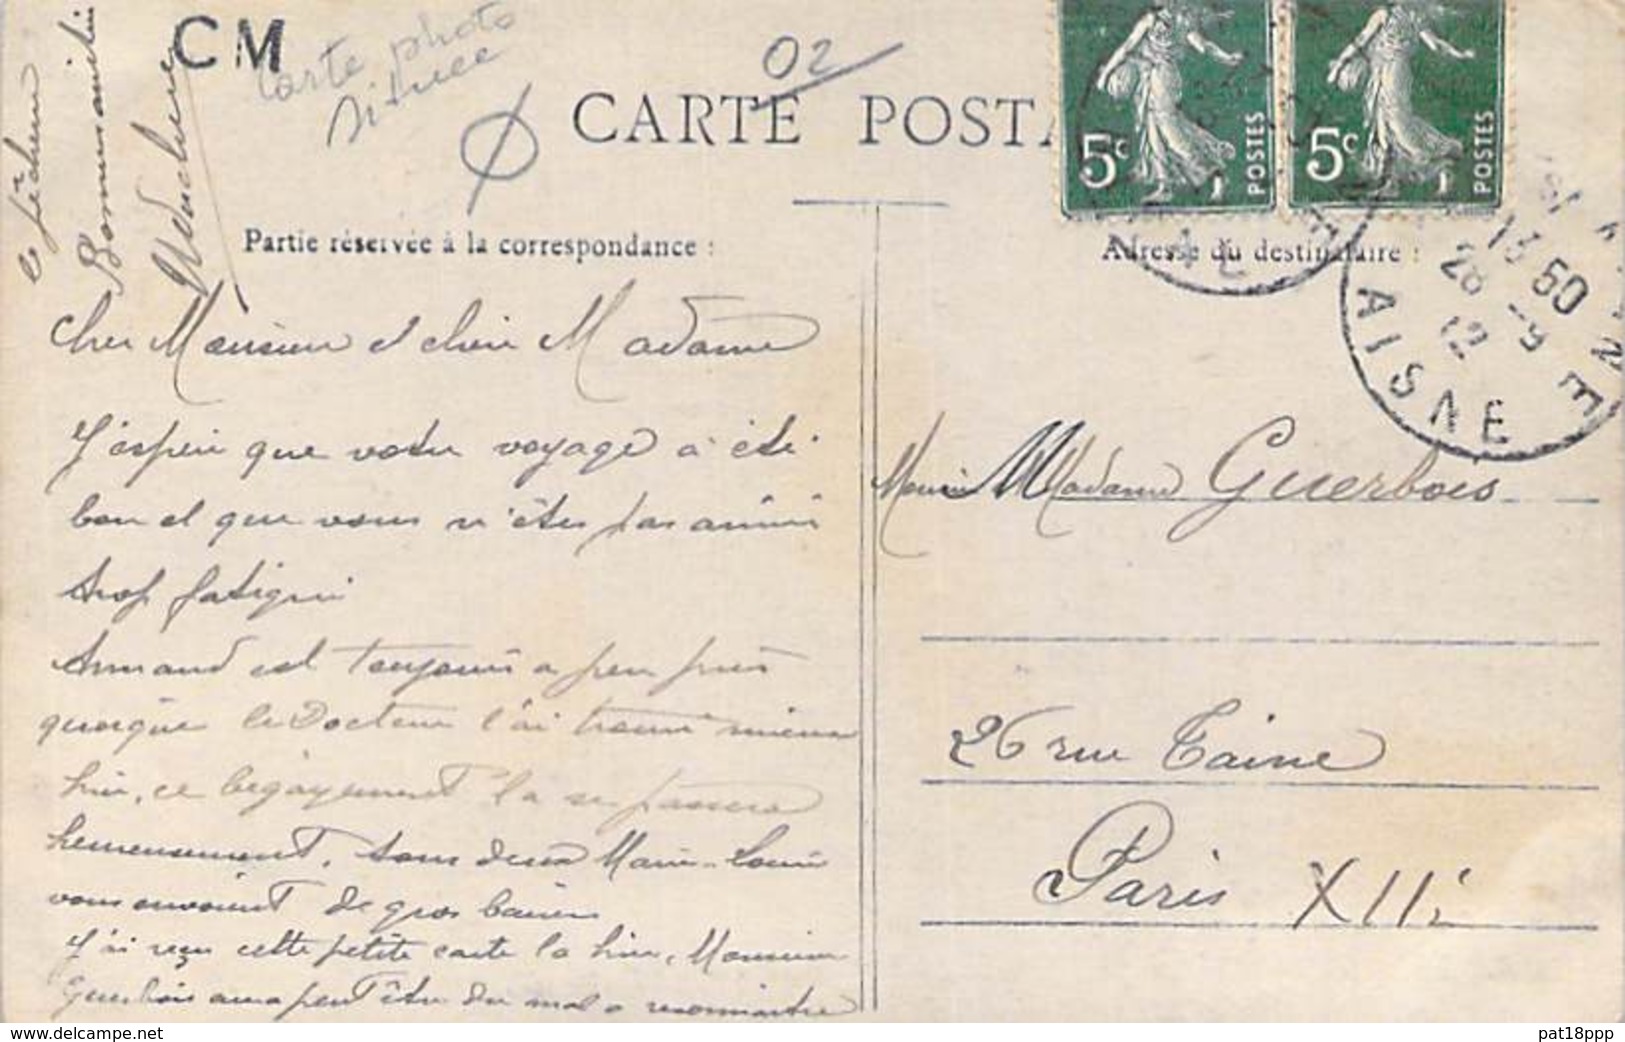 CM
Carte photo
située
02
CARTE POSTA
5c POSTES
5c POSTES
Partie réservée à la correspondance :
Adresse du destinataire :
13 50
28 - 9
12
AISNE
le pécheur
Cher Monsieur et chère Madame
J'espère que votre voyage a été
bon et que vous n'êtes pas arrivés
trop fatigués
Armand est toujours a peu près
quoique le Docteur l'ai trouvé mieux
hier, ce bégayement la se passera
heureusement. tous deux Marie-Louise
vous envoient de gros baisers
J'ai reçu cette petite carte la hier, Monsieur
Guerbois aura peut être du mal a reconnaitre
Madame Guerbois
26 rue Taine
Paris XIIè
pat18ppp